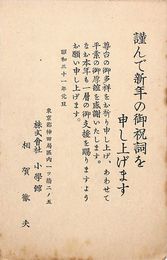 謹んで新年の御祝詞を
申し上げます
尊台の御多祥をお祈り申し上げ、あわせて
平素の御厚誼を感謝いたします。
なお本年も一層の御支援を賜りますよう
お願い申し上げます。
昭和三十一年元旦
東京都神田局区内一ツ橋二ノ五
株式會社 小學館
相賀徹夫